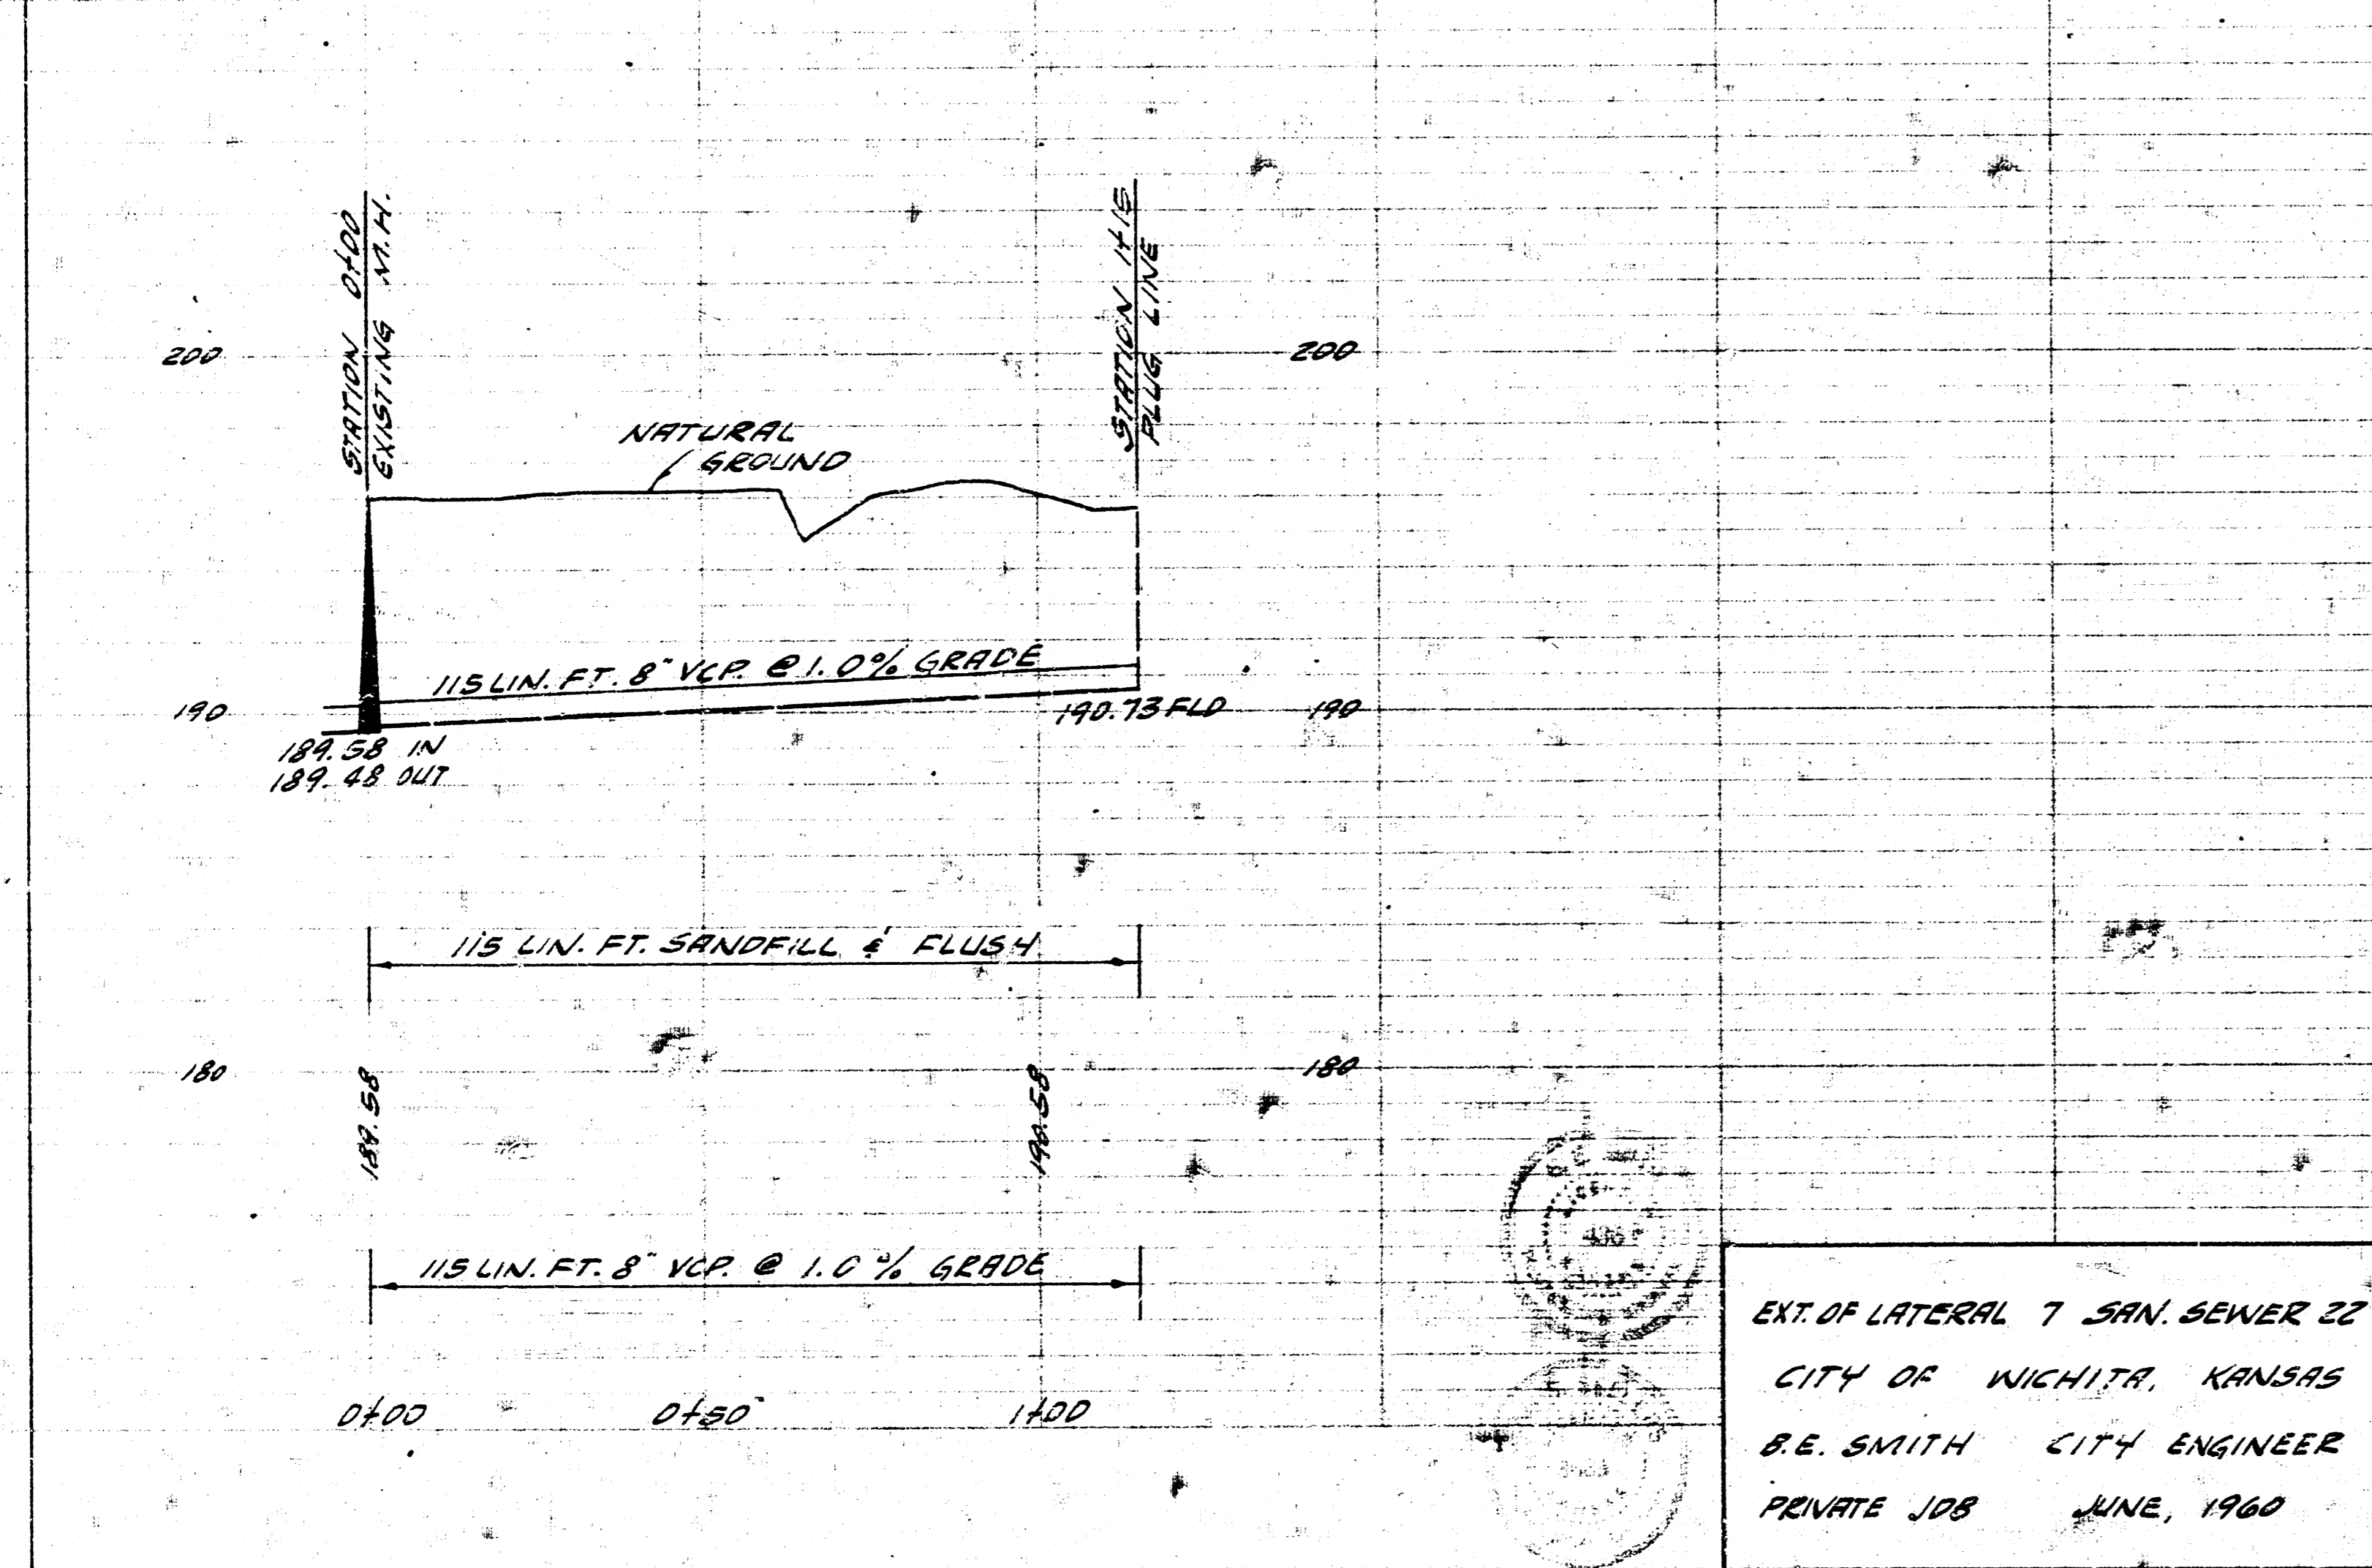 STATION 0+00
EXISTING M.H.
STATION 1+15
PLUG LINE
200
200
NATURAL
GROUND
115 LIN. FT. 8" VCP. @ 1.0% GRADE
190
190.73 FLO
190
189.58 IN
189.48 OUT
115 LIN. FT. SANDFILL & FLUSH
180
180
189.58
190.58
115 LIN. FT. 8" VCP. @ 1.0% GRADE
0+00
0+50
1+00
EXT. OF LATERAL 7 SAN. SEWER 22
CITY OF WICHITA, KANSAS
B.E. SMITH CITY ENGINEER
PRIVATE JOB JUNE, 1960